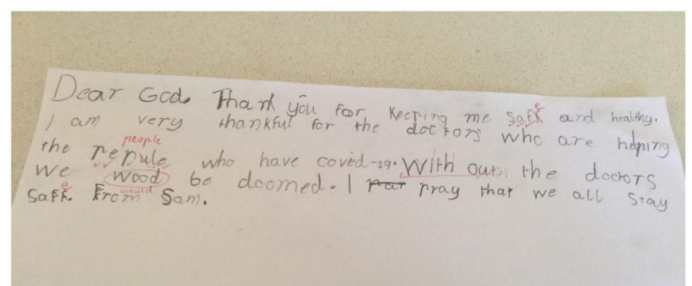 Dear God, Thank you for keeping me saff e and healthy.
I am very thankful for the doctors who are helping
people
the repule who have covid-19. With out the doctors
we wood be doomed. I par pray that we all stay
would
saff e. From Sam.